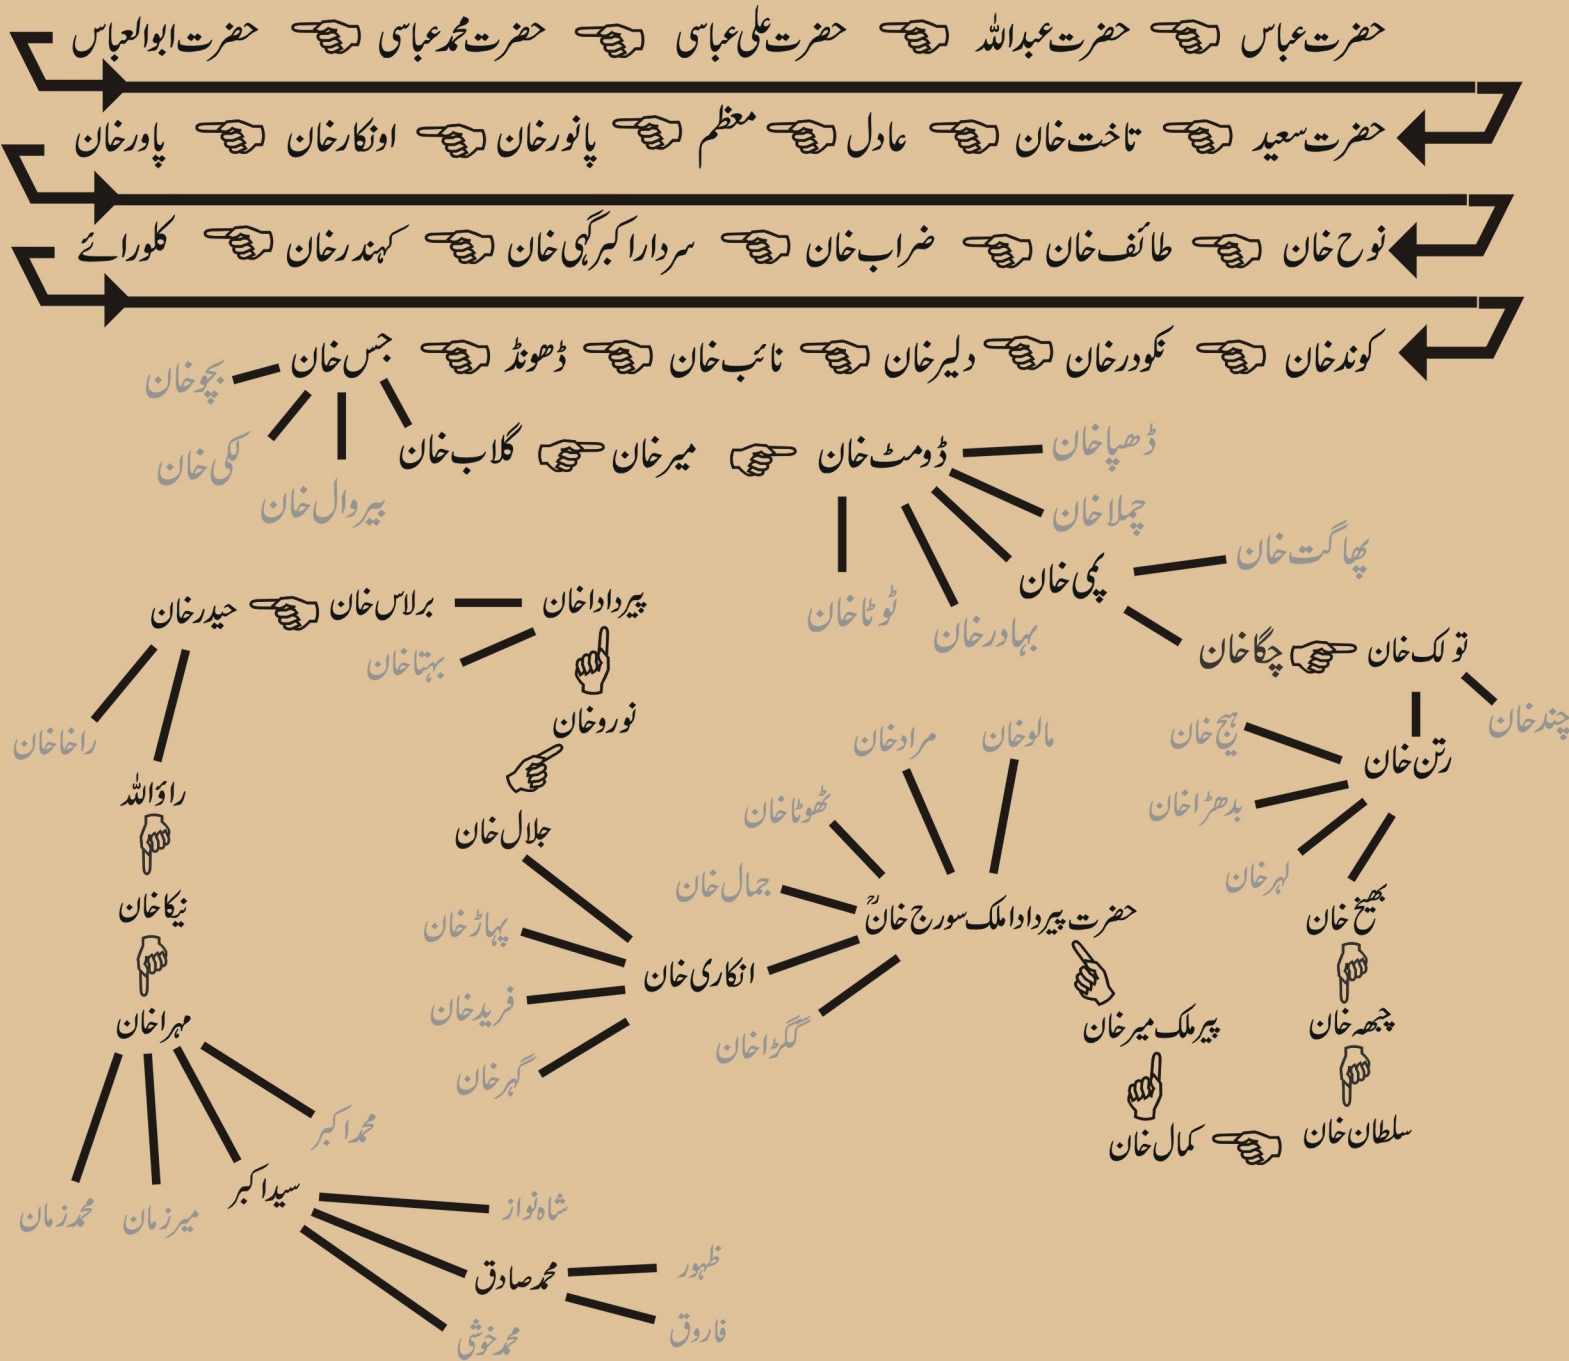 حضرت عباس حضرت عبداللہ حضرت علی عباسی حضرت محمد عباسی حضرت ابوالعباس
حضرت سعید تاخت خان عادل معظم پانور خان اونکار خان پاور خان
نوح خان طائف خان ضراب خان سردار اکبر گہی خان کہندر خان کلورائے
کوند خان نکودر خان دلیر خان نائب خان ڈھونڈ جس خان
بچو خان
لکی خان
بیروال خان
گلاب خان میر خان ڈومٹ خان
ڈھپا خان
چملا خان
پمی خان
بہادر خان
ٹوٹا خان
پھاگت خان
چگا خان تولک خان
چند خان
رتن خان
ہیج خان
بدھڑا خان
لہر خان
بھیخ خان
چبھہ خان
سلطان خان
کمال خان
پیر ملک میر خان
حضرت پیر دادا ملک سورج خانؒ
مالو خان
مراد خان
ٹھوٹا خان
جمال خان
گگڑا خان
انکاری خان
جلال خان
پہاڑ خان
فرید خان
گہر خان
نورو خان
پیر دادا خان
برلاس خان
بہتا خان
حیدر خان
راخا خان
راؤ اللہ
نیکا خان
مہرا خان
محمد اکبر
سید اکبر
میر زمان
محمد زمان
شاہ نواز
محمد صادق
محمد خوشی
ظہور
فاروق